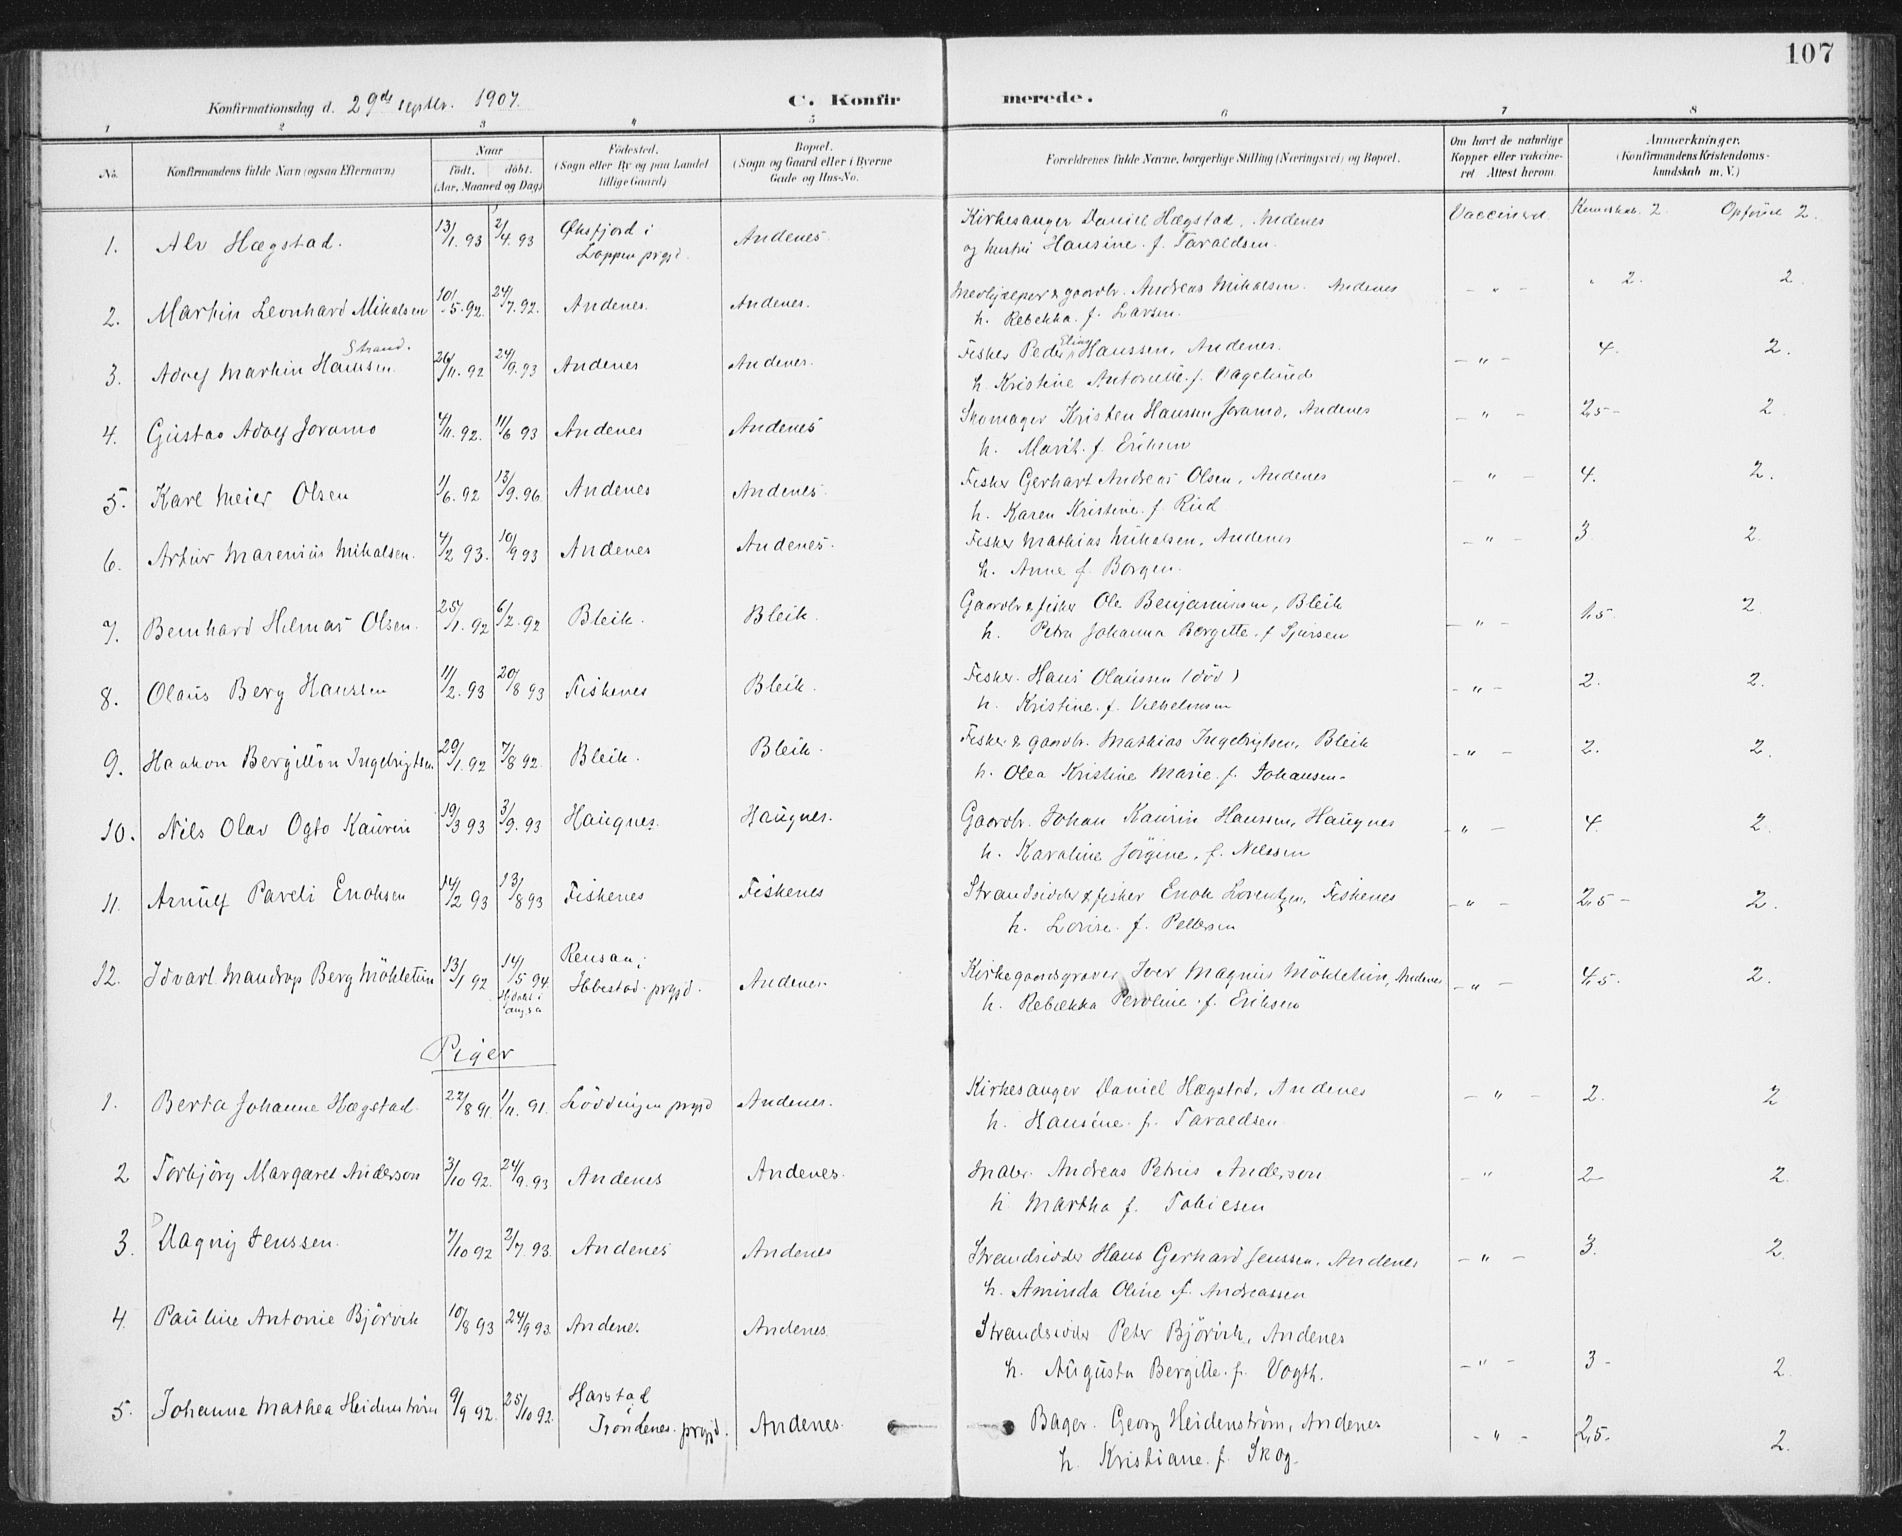 107
Konfirmationsdag d. 29de septbr. 1907. C. Konfirmerede.
1 2 3 4 5 6 7 8
No. Konfirmandens fulde Navn (ogsaa Efternavn) Naar født. døbt. (Aar, Maaned og Dag) Fødested. (Sogn eller By og paa Landet tillige Gaard) Bopæl. (Sogn og Gaard eller i Byerne Gade og Hus-No. Forældrenes fulde Navne, borgerlige Stilling (Næringsvei) og Bopæl. Om havt de naturlige Kopper eller vakcineret Attest herom. Anmærkninger. (Konfirmandens Kristendomskundskab m. V.)
1. Alv Hægstad. 13/1. 93 2/4. 93 Øksfjord i Andenes Kirkesanger Daniel Hægstad, Andenes Vaccinerd. Kundskab. 2. Opførsel 2.
Loppen prgjd. og hustru Hansine f. Taraldsen.
2. Martin Leonhard Mikalsen 10/5. 92. 24/7. 92. Andenes. Andenes. Medhjælper & gaardbr. Andreas Mikalsen. Andenes - " - " 2. 2.
h. Rebekka f. Larsen.
Strand.
3. Adolf Martin Hanssen 26/11. 92 24/9. 93 Andenes Andenes. Fisker Peder Elias Hanssen, Andenes. - " - 4. 2.
h. Kristine Antonette f. Vagelund
4. Gustav Adolf Joramo 4/11. 92. 11/6 93 Andenes Andenes Skomager Kristen Hanssen Joramo, Andenes - " - 2,5 - 2
h. Marit f. Eriksen
5. Karl Meier Olsen 1/6. 92 13/9. 96. Andenes Andenes. Fisker Gerhart Andreas Olsen, Andenes - " - 4. 2.
h. Karen Kristine f. Rud
6. Artur Marenius Mikalsen. 4/2 93. 10/9 93 Andenes Andenes. Fisker Mathias Mikalsen, Andenes - " - 3. 2.
h. Anne f. Borgen.
7. Bernhard Hilmar Olsen. 25/1. 92 6/2. 92 Bleik. Bleik. Gaardbr & fisker Ole Benjaminsen, Bleik - " - 1,5 2.
h. Petra Johanna Bergitte f. Sjursen
8. Olaus Berg Hanssen 11/2. 93 20/8 93 Fiskenes Bleik. Fisker. Hans Olaussen (død) - " - 2. 2.
h. Kristine f. Vilhelmsen
9. Haakon Bergiton Ingebrigtsen 29/1. 92 7/8 92. Bleik. Bleik. Fisker & gaardbr. Mathias Ingebrigtsen, Bleik - " - 2. 2.
h. Olea Kristine Marie f. Johansen.
10. Nils Olav Ogto Kaurin 19/3 93 3/9. 93 Haugnes. Haugnes. Gaardbr. Johan Kaurin Hanssen, Haugnes - " - 4. 2.
h. Karoline Jørgine, f. Nilssen
11. Arnulf Paveli Enoksen 14/2 93 13/8 93 Fiskenes Fiskenes Strandsidder & fisker Enok Lorentzen, Fiskenes - " - 2,5 - 2.
h. Lovise. f. Pettersen
12. Idvart Mandrop Berg Möhletun 13/1 92 14/5 94. Rensaa, Andenes. Kirkegaardsgraver Iver Magnus Möhletun, Andenes - " - 4,5. 2.
Ibestad prgjd. h. Rebekka Peroline f. Eriksen
Piger
1. Berta Johanne Hægstad 22/8 91. 1/11. 91. Lödingen prgjd Andenes. Kirkesanger Daniel Hægstad, Andenes - " - 2. 2
h. Hansine f. Taraldsen
2 Torbjörg Margaret Anderson 3/10 92. 24/9. 93 Andenes Andenes. Maler. Andreas Petrus Anderson - " 2 2.
h Martha f. Tobiesen
3. Dagny Jenssen. 7/10 92 2/7. 93. Andenes Andenes Strandsidder Hans Gerhard Jenssen, Andenes - " - 3. 2.
h. Aminda Oline f. Andreassen
4. Pauline Antonie Björvik 10/8 93 24/9 93. Andenes. Andenes Strandsidder Peter Björvik, Andenes
h. Augusta Bergitte f. Vogth. - " - 3 - 2.
5. Johanne Mathea Heidenström 9/9 92. 25/10 92. Harstad Andenes. Bager. Georg Heidenström, Andenes - " - 2,5. 2.
Tröndenes prgjd. h. Kristiane f. Skog.